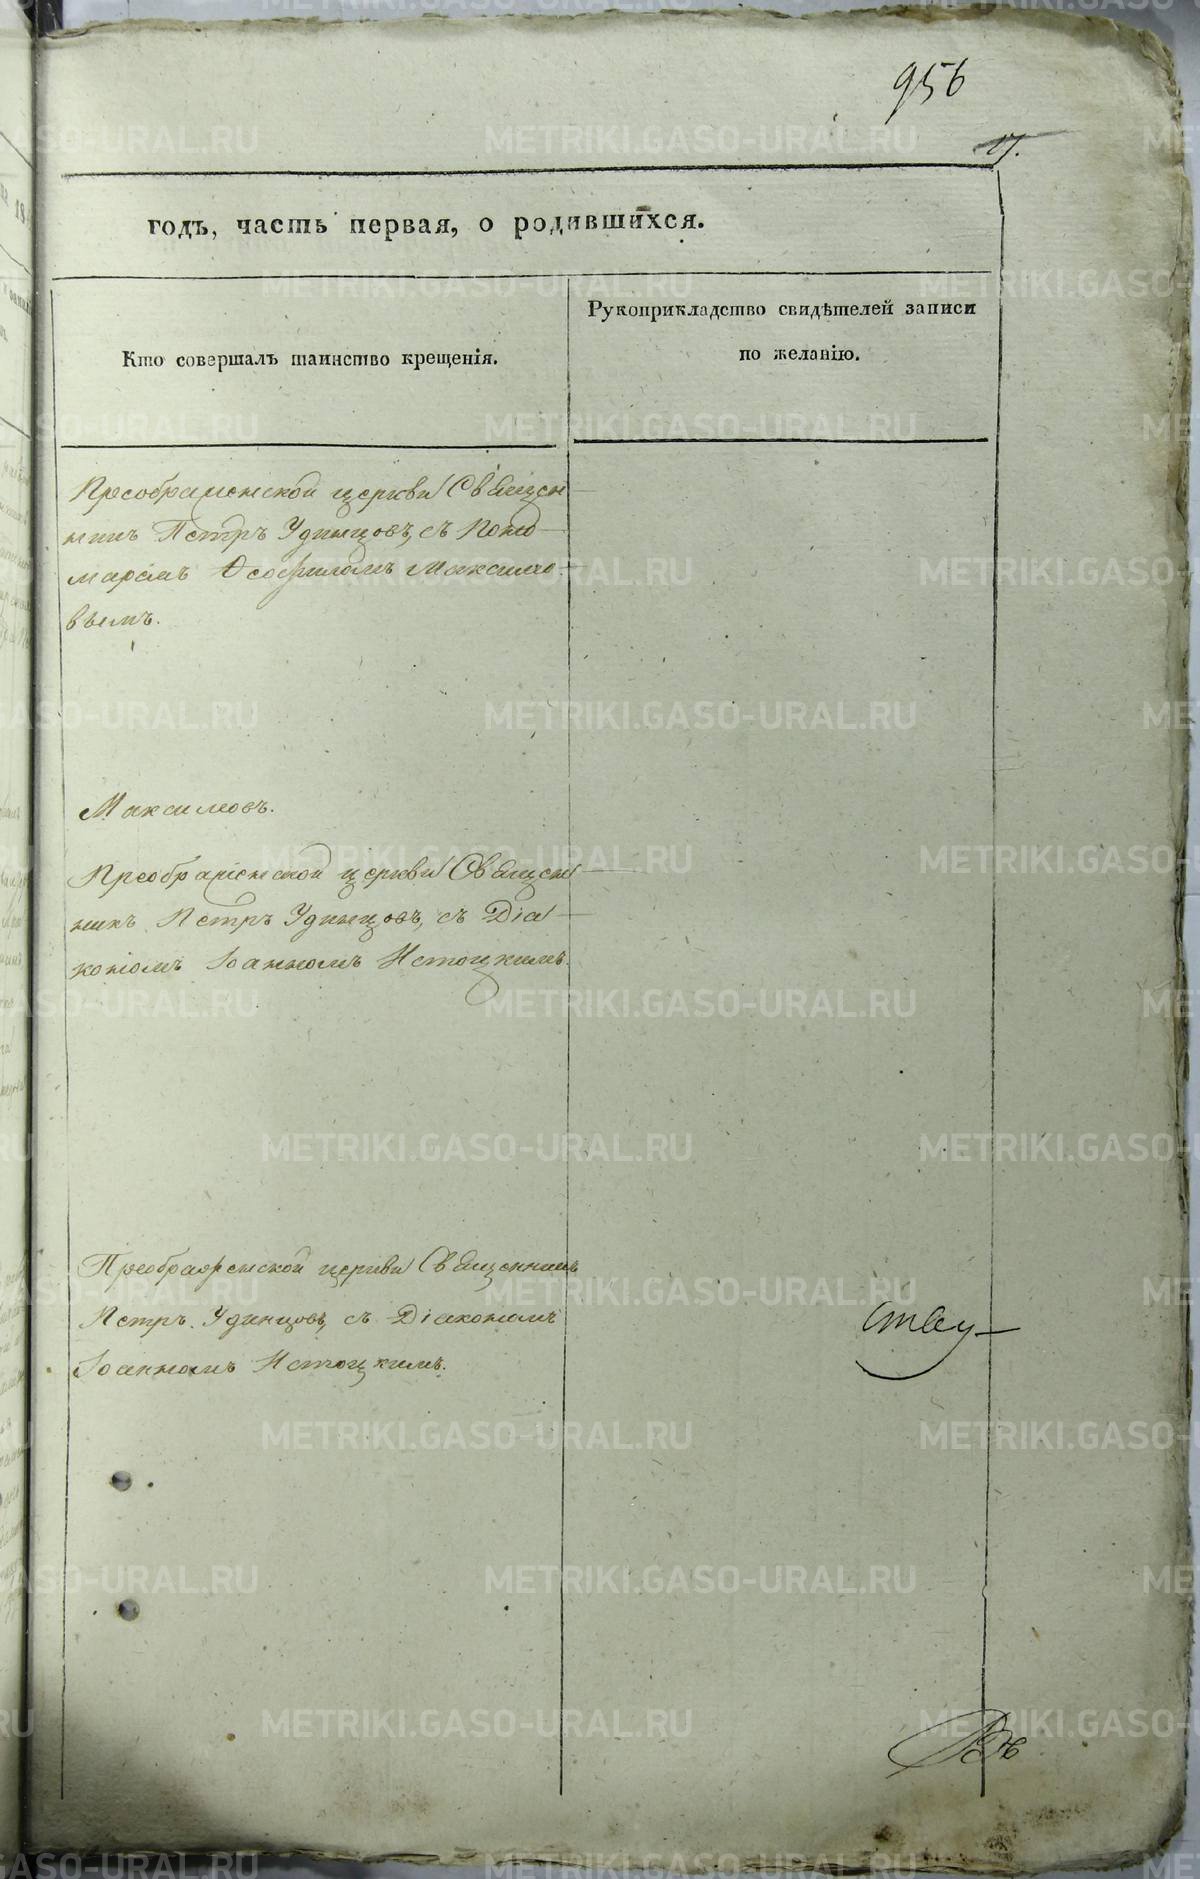 956
17.
годъ, часть первая, о родившихся.
Кто совершалъ таинство крещенія.
Рукоприкладство свидѣтелей записи
по желанію.
Преображенской церкви Священ
никъ Петръ Удинцовъ, съ Поно
маремъ Ѳеофиломъ Максимо
вымъ.
Максимовъ.
Преображенской церкви Священ
никъ Петръ Удинцовъ, съ Діа
кономъ Іоанномъ Истоцкимъ.
Преображенской церкви Священникъ
Петръ Удинцовъ, съ Діакономъ
Іоанномъ Истоцкимъ.
METRIKI.GASO-URAL.RU